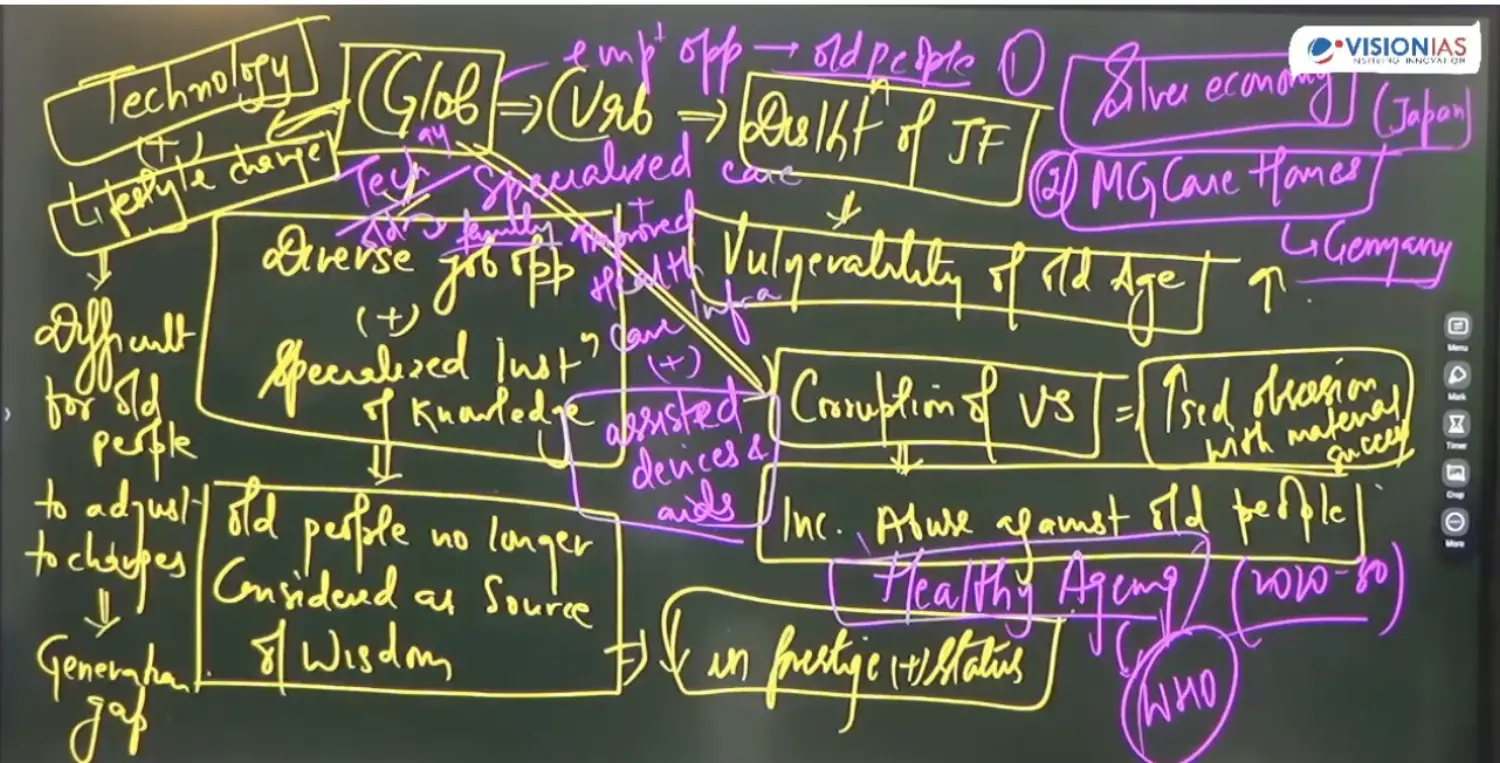 VISIONIAS
INSPIRING INNOVATION
Technology
(+)
Lifestyle change
Difficult
for old
people
to adjust
to changes
Generation
gap
Glob ⇒ Urb ⇒ Disint n of JF
emp opp → old people ①
Silver economy
(Japan)
② MG Care Homes
↳ Germany
Tech
family
Specialised care
+
improved
Health
Care Infra
(+)
assisted
devices &
aids
Diverse job opp
(+)
Specialized Inst n
of Knowledge
old people no longer
Considered as Source
of Wisdom
⇒ ↓ in prestige (+) Status
Vulnerability of old Age ↑
Corruption of VS = ↑sed obsession
with material
success
Inc. Abuse against old people
Healthy Ageing (2020-30)
WHO
Menu
Mark
Timer
Crop
More